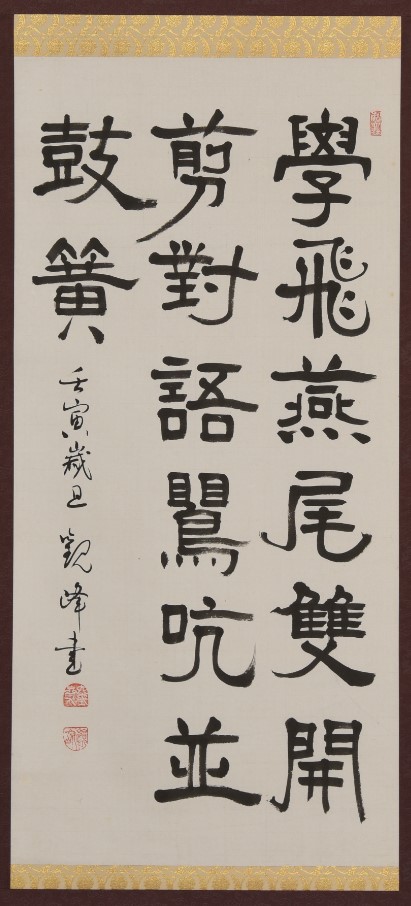 學飛燕尾雙開
剪對語鸎吭並
鼓簧 壬寅歲旦 觀峰書